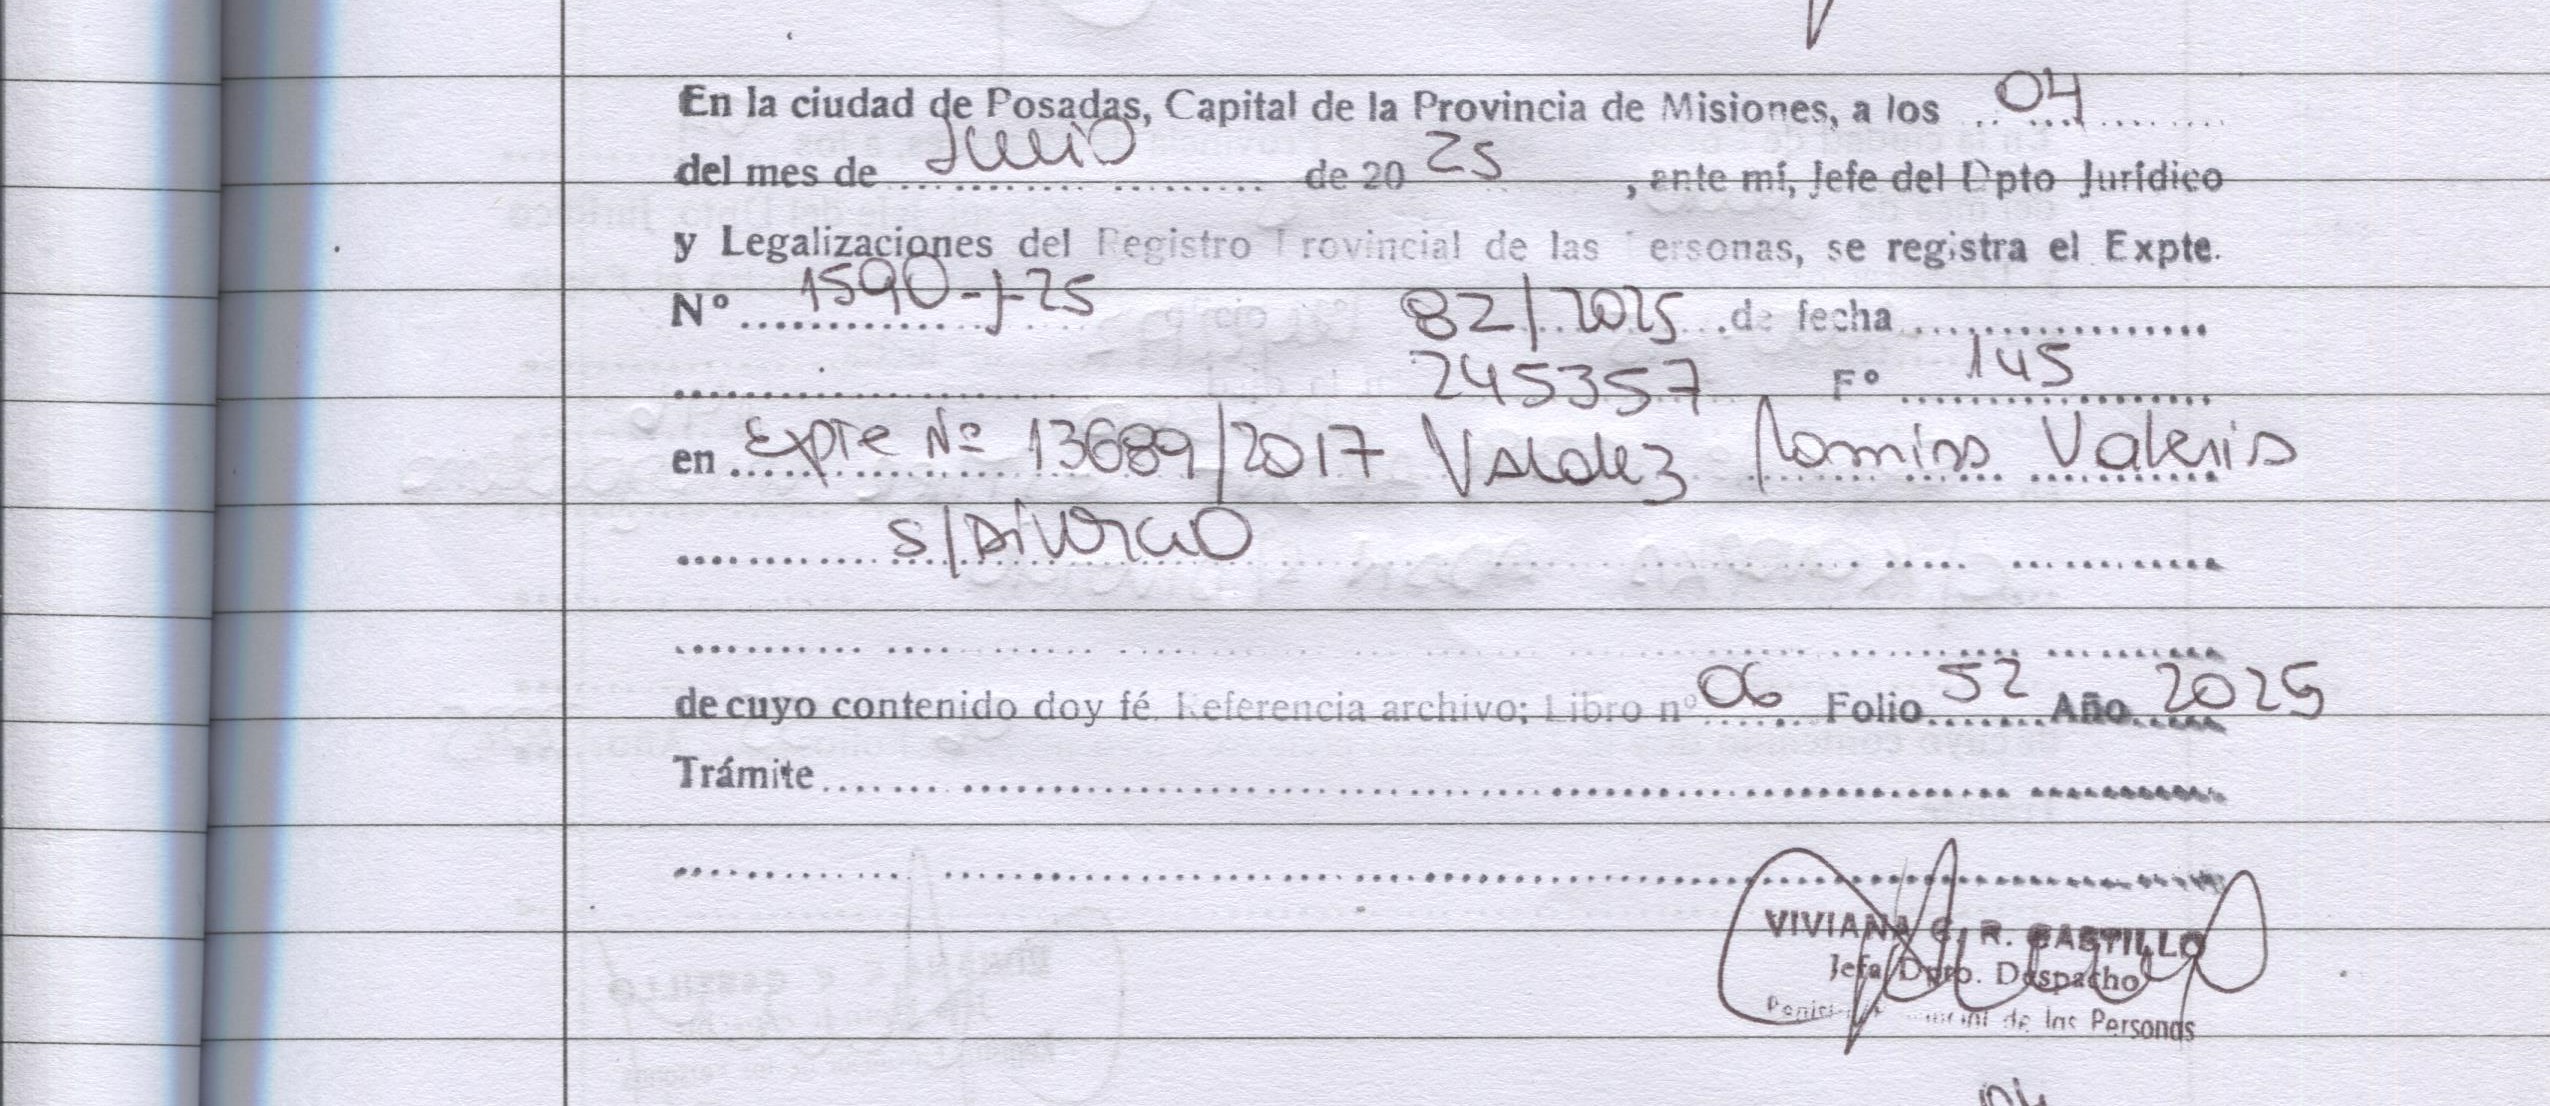 En la ciudad de Posadas, Capital de la Provincia de Misiones, a los 04
del mes de Junio de 2025, ante mí, Jefe del Dpto Jurídico
y Legalizaciones del Registro Provincial de las Personas, se registra el Expte.
Nº 1590-J-25 82/2025 de fecha
245357 Fº 145
en Expte Nº 13689/2017 Valdez Romina Valeria
S/Divorcio
de cuyo contenido doy fé. Referencia archivo; Libro nº 06 Folio 52 Año 2025
Trámite
VIVIANA C. R. CASTILLO
Jefa Dpto. Despacho
de las Personas